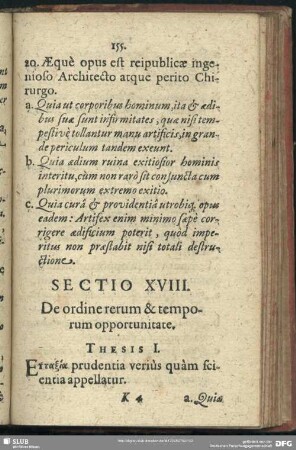 155.
20. Æquè opus est reipublicæ inge-
nioso Architecto atque perito Chi-
rurgo.
a. Quia ut corporibus hominum, ita & ædi-
bus suæ sunt infirmitates, quæ nisi tem-
pestivè tollantur manu artificis, in gran-
de periculum tandem exeunt.
b. Quia ædium ruina exitiosior hominis
interitu, cùm non rarò sit conjuncta cum
plurimorum extremo exitio.
c. Quia curâ & providentiâ utrobiq; opus
eadem: Artifex enim minimo sæpè cor-
rigere ædificium poterit, quod impe-
ritus non præstabit nisi totali destru-
ctione.
SECTIO XVIII.
De ordine rerum & tempo-
rum opportunitate.
THESIS I.
Ευταξία prudentia veriùs quàm sci-
entia appellatur.
K 4 a. Quia
SLUB
DFG